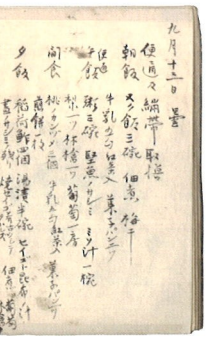 九月十三日 曇
便通々繃帯取換
朝飯 ヌク飯三碗 佃煮 梅干
牛乳五勺紅茶入 菓子パン二ツ
便通
午飯 粥三碗 堅魚ノサシミ ミソ汁一碗
梨一ツ 林檎一ツ 葡萄一房
間食 桃ノカンヅメ三個 牛乳五勺紅茶入 菓子パン一ツ
煎餅一枚
夕飯 稲荷鮓四個 湯漬半碗
佃煮 葡萄